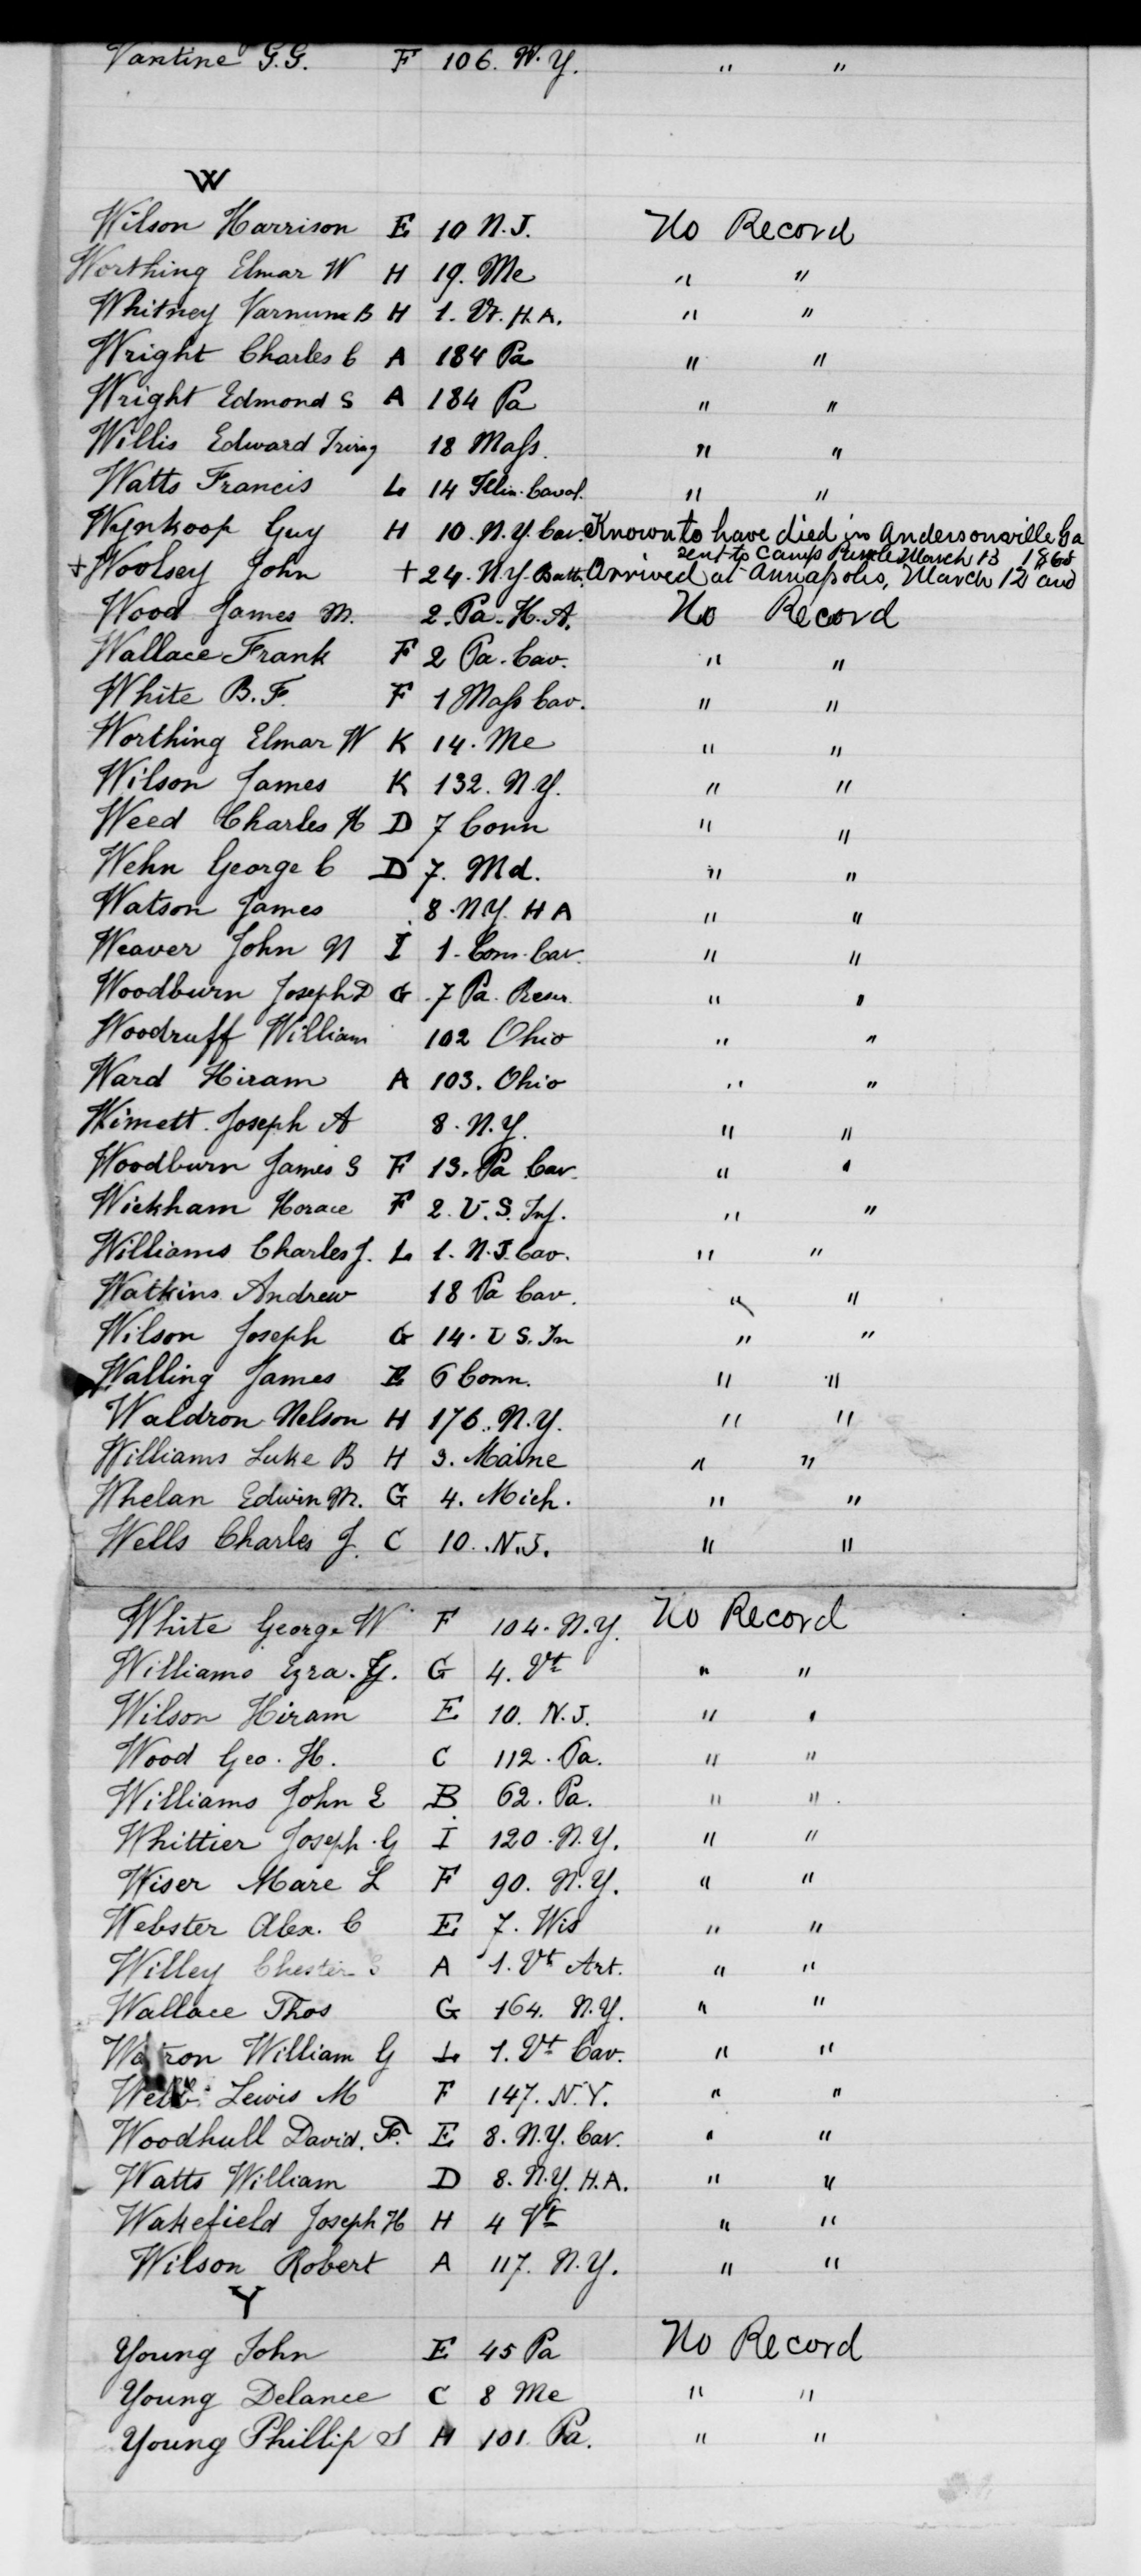 Vantine G.G. F 106. N.Y. " "
W
Wilson Harrison E 10 N.J. No Record
Worthing Elmar W H 19. Me " "
Whitney Varnum B H 1. Vt. H.A. " "
Wright Charles C A 184 Pa " "
Wright Edmond S A 184 Pa " "
Willis Edward Irving 18 Mass. " "
Watts Francis L 14 Illin. Caval. " "
Wynkoop Guy H 10. N.Y. Cav. Known to have died in Andersonville Ga
sent to Camp March 13 1865
+ Woolsey John + 24. N.Y. Batt. Arrived at Annapolis, March 12 and
Wood James M. 2. Pa. H.A. No Record
Wallace Frank F 2 Pa. Cav. " "
White B.F. F 1 Mass Cav. " "
Worthing Elmar W K 14. Me " "
Wilson James K 132. N.Y. " "
Weed Charles H D 7 Conn " "
Wehn George C D 7. Md. " "
Watson James 8. N.Y. H A " "
Weaver John N I 1. Conn. Cav. " "
Woodburn Joseph D G 7 Pa. Reser. " "
Woodruff William 102 Ohio " "
Ward Hiram A 103. Ohio " "
Wimett. Joseph A 8. N.Y. " "
Woodburn James S F 13. Pa Cav. " "
Wickham Horace F 2. U.S. Inf. " "
Williams Charles J. L 1. N.J. Cav. " "
Watkins Andrew 18 Pa Cav. " "
Wilson Joseph G 14. U S. In " "
Walling James E 6 Conn. " "
Waldron Nelson H 176. N.Y. " "
Williams Luke B H 3. Maine " "
Whelan Edwin M. G 4. Mich. " "
Wells Charles J. C 10. N.J. " "
White George W F 104. N.Y. No Record
Williams Ezra. G. G 4. Vt " "
Wilson Hiram E 10. N.J. " "
Wood Geo. H. C 112. Pa. " "
Williams John E B 62. Pa. " "
Whittier Joseph. G I 120. N.Y. " "
Wiser Mare L F 90. N.Y. " "
Webster Alex. C E 7. Wis " "
Willey Chester S A 1. Vt Art. " "
Wallace Thos G 164. N.Y. " "
William G L 1. Vt Cav. " "
Lewis M F 147. N.Y. " "
Woodhull David. F. E 8. N.Y. Cav. " "
Watts William D 8. N.Y. H.A. " "
Wakefield Joseph H H 4 Vt " "
Wilson Robert A 117. N.Y. " "
Y
Young John E 45 Pa No Record
Young Delance C 8 Me " "
Young Phillip S H 101 Pa. " "